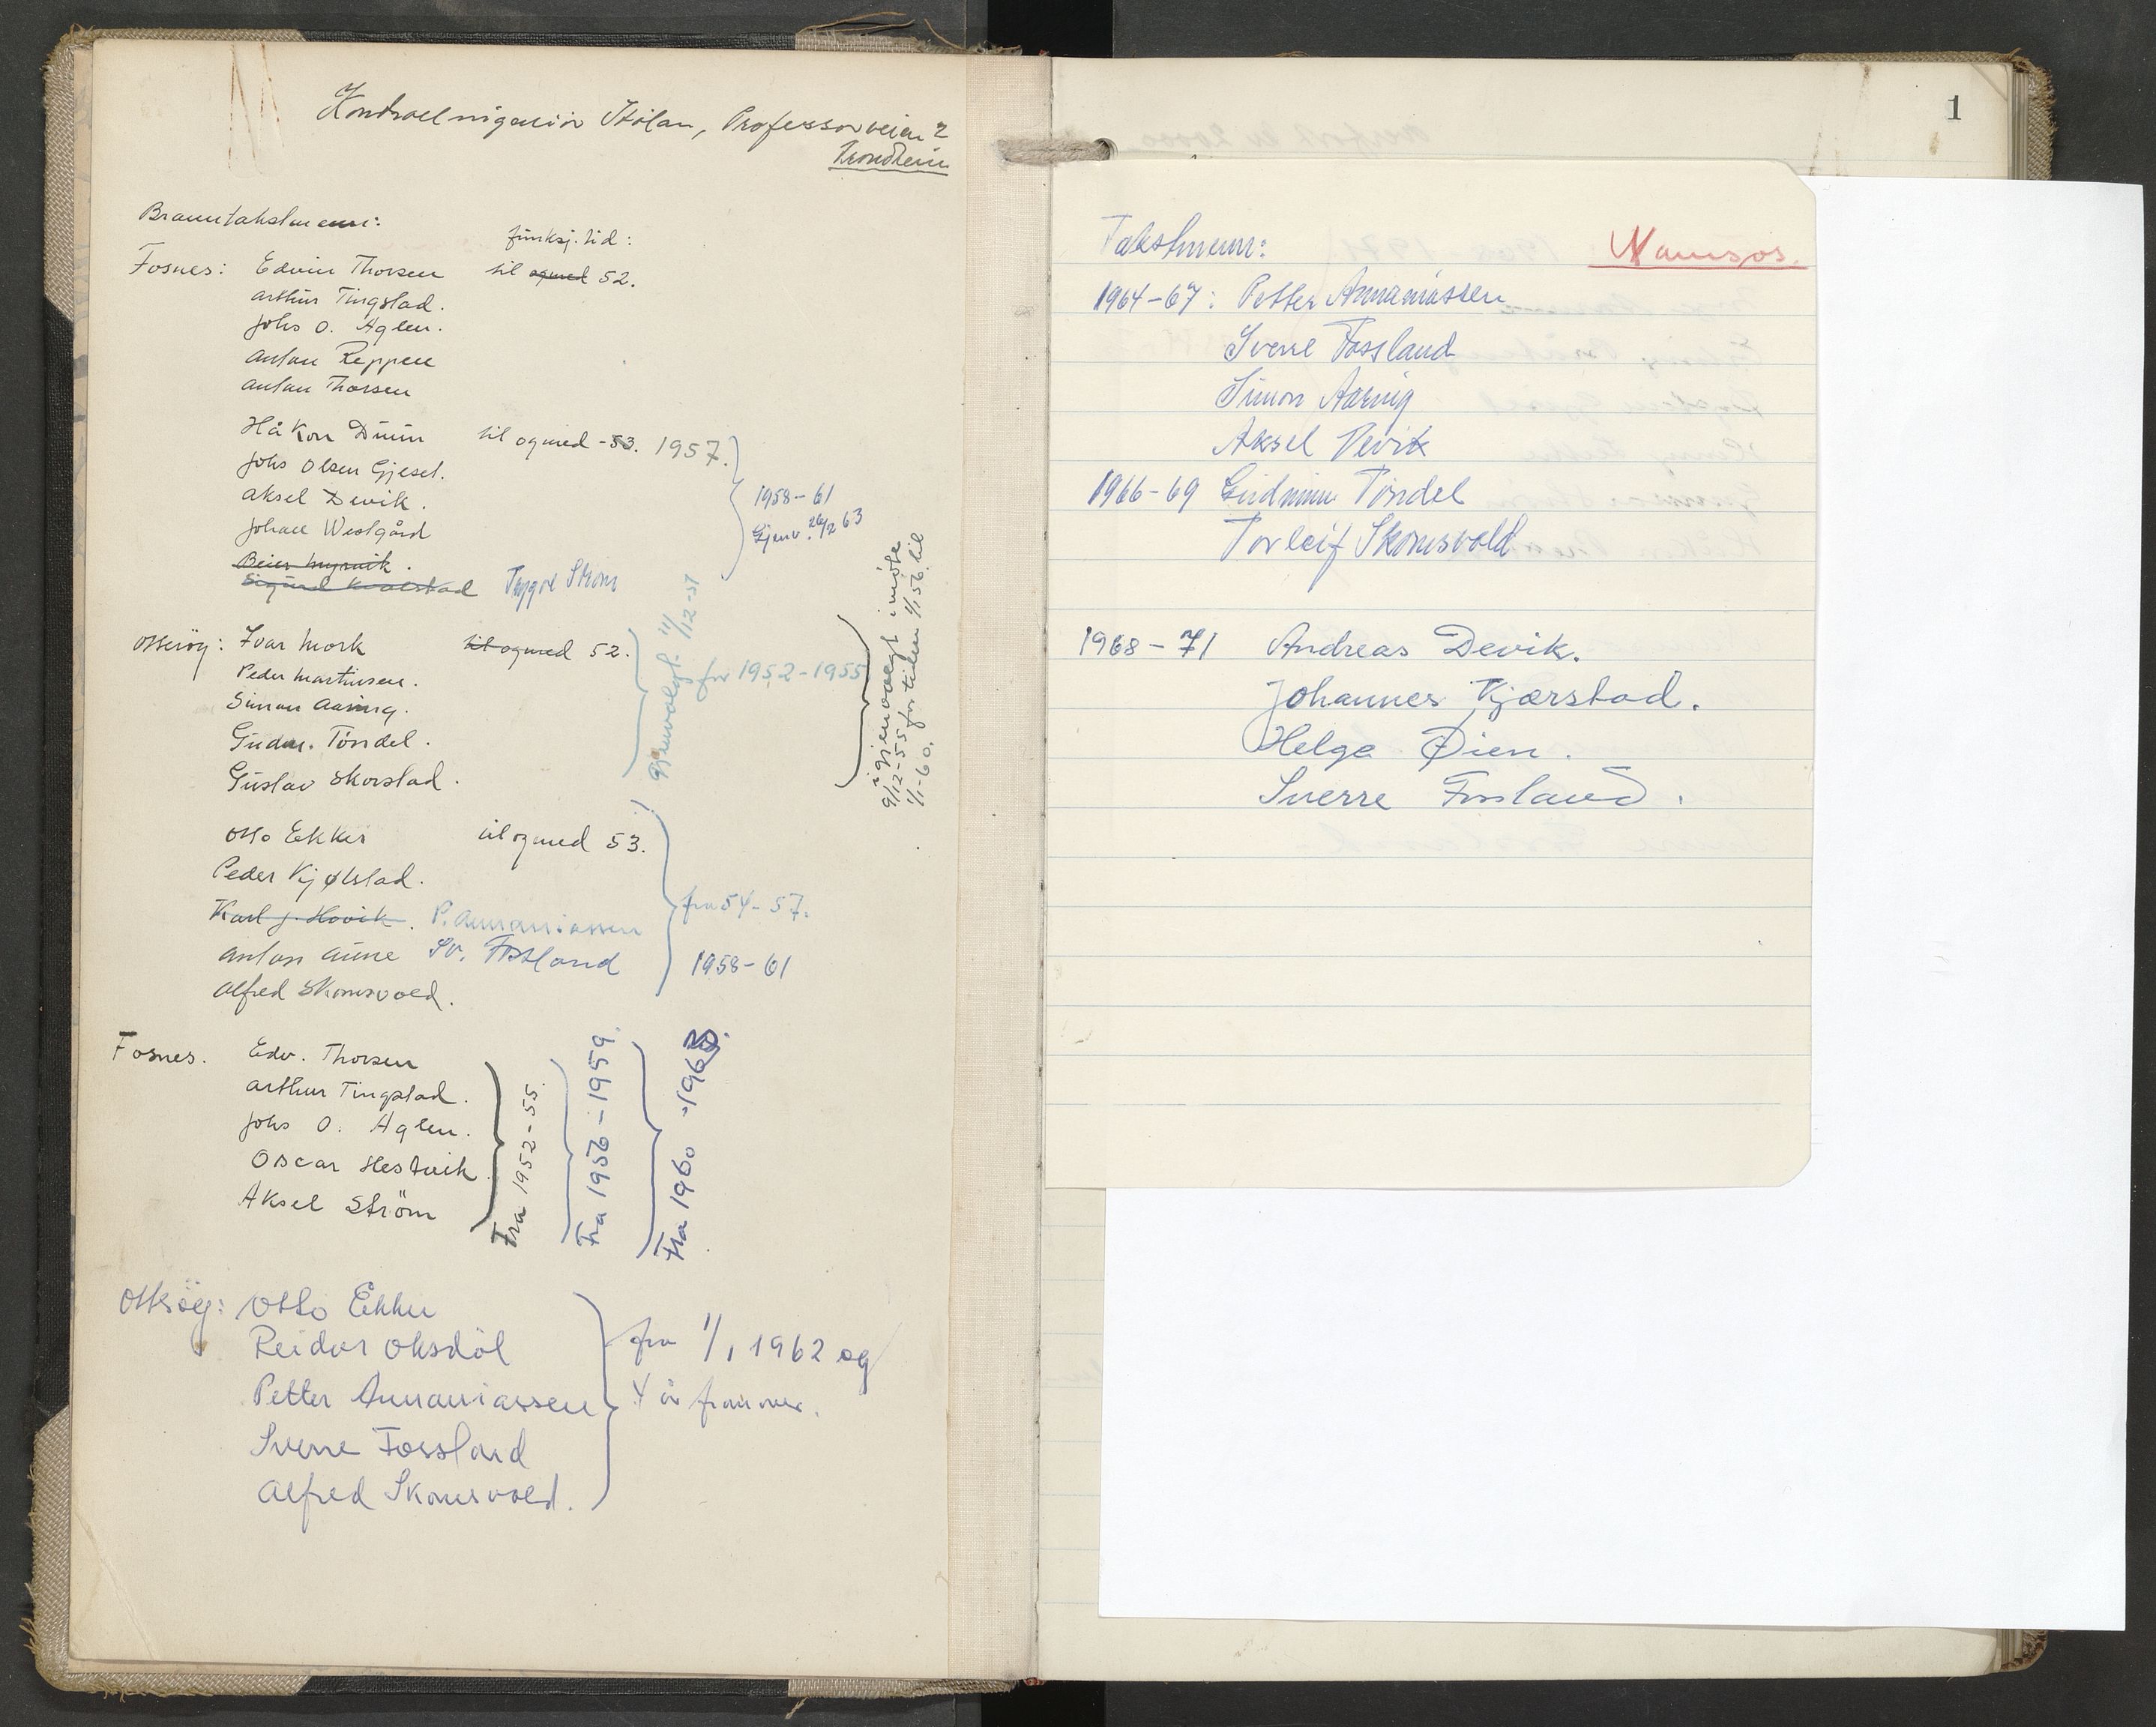 Kontrollingeniør Stölan, Professorveien 2
Trondheim
Branntakstmenn:
funksj. tid:
Fosnes: Edvin Thorsen til ogmed 52.
Arthur Tingstad.
Johs O. Aglen.
Anton Reppen
Anton Thorsen
Håkon Duun til ogmed -53. 1957.
Johs Olsen Gjeset.
Aksel Devik.
Johan Westgård
1958-61
Gjenv. 26/2 63
Sigurd Kvalstad Trygve Strøm
Otterøy: Ivar Mork til ogmed 52.
Peder Martinsen.
Simon Aasnig.
Gudm. Töndel.
Gustav Skorstad.
Gjenvalgt. 11/12-51
for 1952-1955
igjenvalgt i møte
9/12-55 for tiden 1/1 56 til
1/1-60.
Otto Ekker til ogmed 53.
Peder Kjølstad.
Karl J. Hovik. P. Annaniassen fra 54-57.
Anton Aune Sv. Fossland 1958-61
Alfred Skomsvold.
Fosnes. Edv. Thorsen
Arthur Tingstad.
Johs O. Aglen.
Oscar Hestvik
Aksel Ström
Fra 1952-55.
Fra 1956-1959.
Fra 1960 -1963.
Otterøy: Otto Ekker
Reidar Oksdöl
Petter Annaniassen
Sverre Fossland
Alfred Skomsvold.
fra 1/1 1962 og
4 år framover.
1
Takstmenn: Namsos.
1964-67: Petter Annaniassen
Sverre Fossland
Simon Aasnig
Aksel Devik
1966-69 Gudmun Töndel
Torleif Skomsvold
1968-71 Andreas Devik.
Johannes Kjærstad.
Helge Øien.
Sverre Fossland.